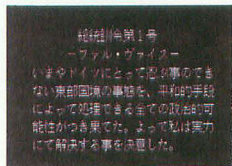 総統訓令第1号
ーファル・ヴァイスー
いまやドイツにとって忍ぶ事のでき
ない東部国境の事態を、平和的手段
によって処理できる全ての政治的可
能性がつき果てた。よって私は実力
にて解決する事を決意した。